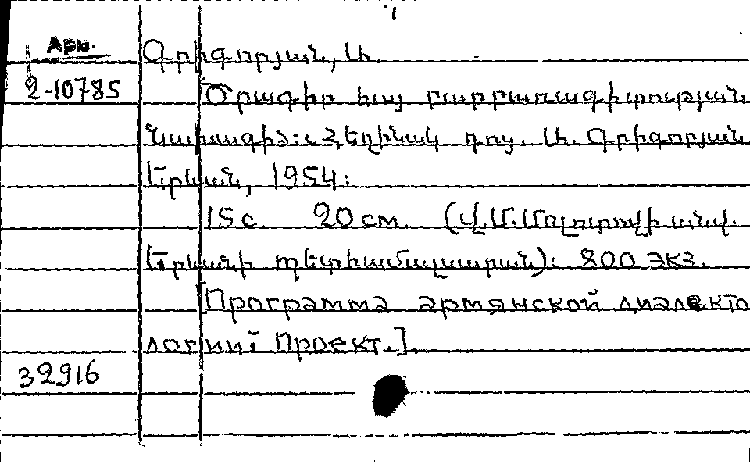 Арм.
2-10785
Գրիգորյան, Ա.
Ծրագիր հայ բարբառագիտության
Նախագիծ: Հեղինակ դոց. Ա. Գրիգորյան
Երևան, 1954:
15 с. 20 см. (Վ.Մ.Մոլոտովի անվ.
Երևանի պետհամալսարան): 800 экз.
[Программа армянской диалекто
логии Проект.].
32916